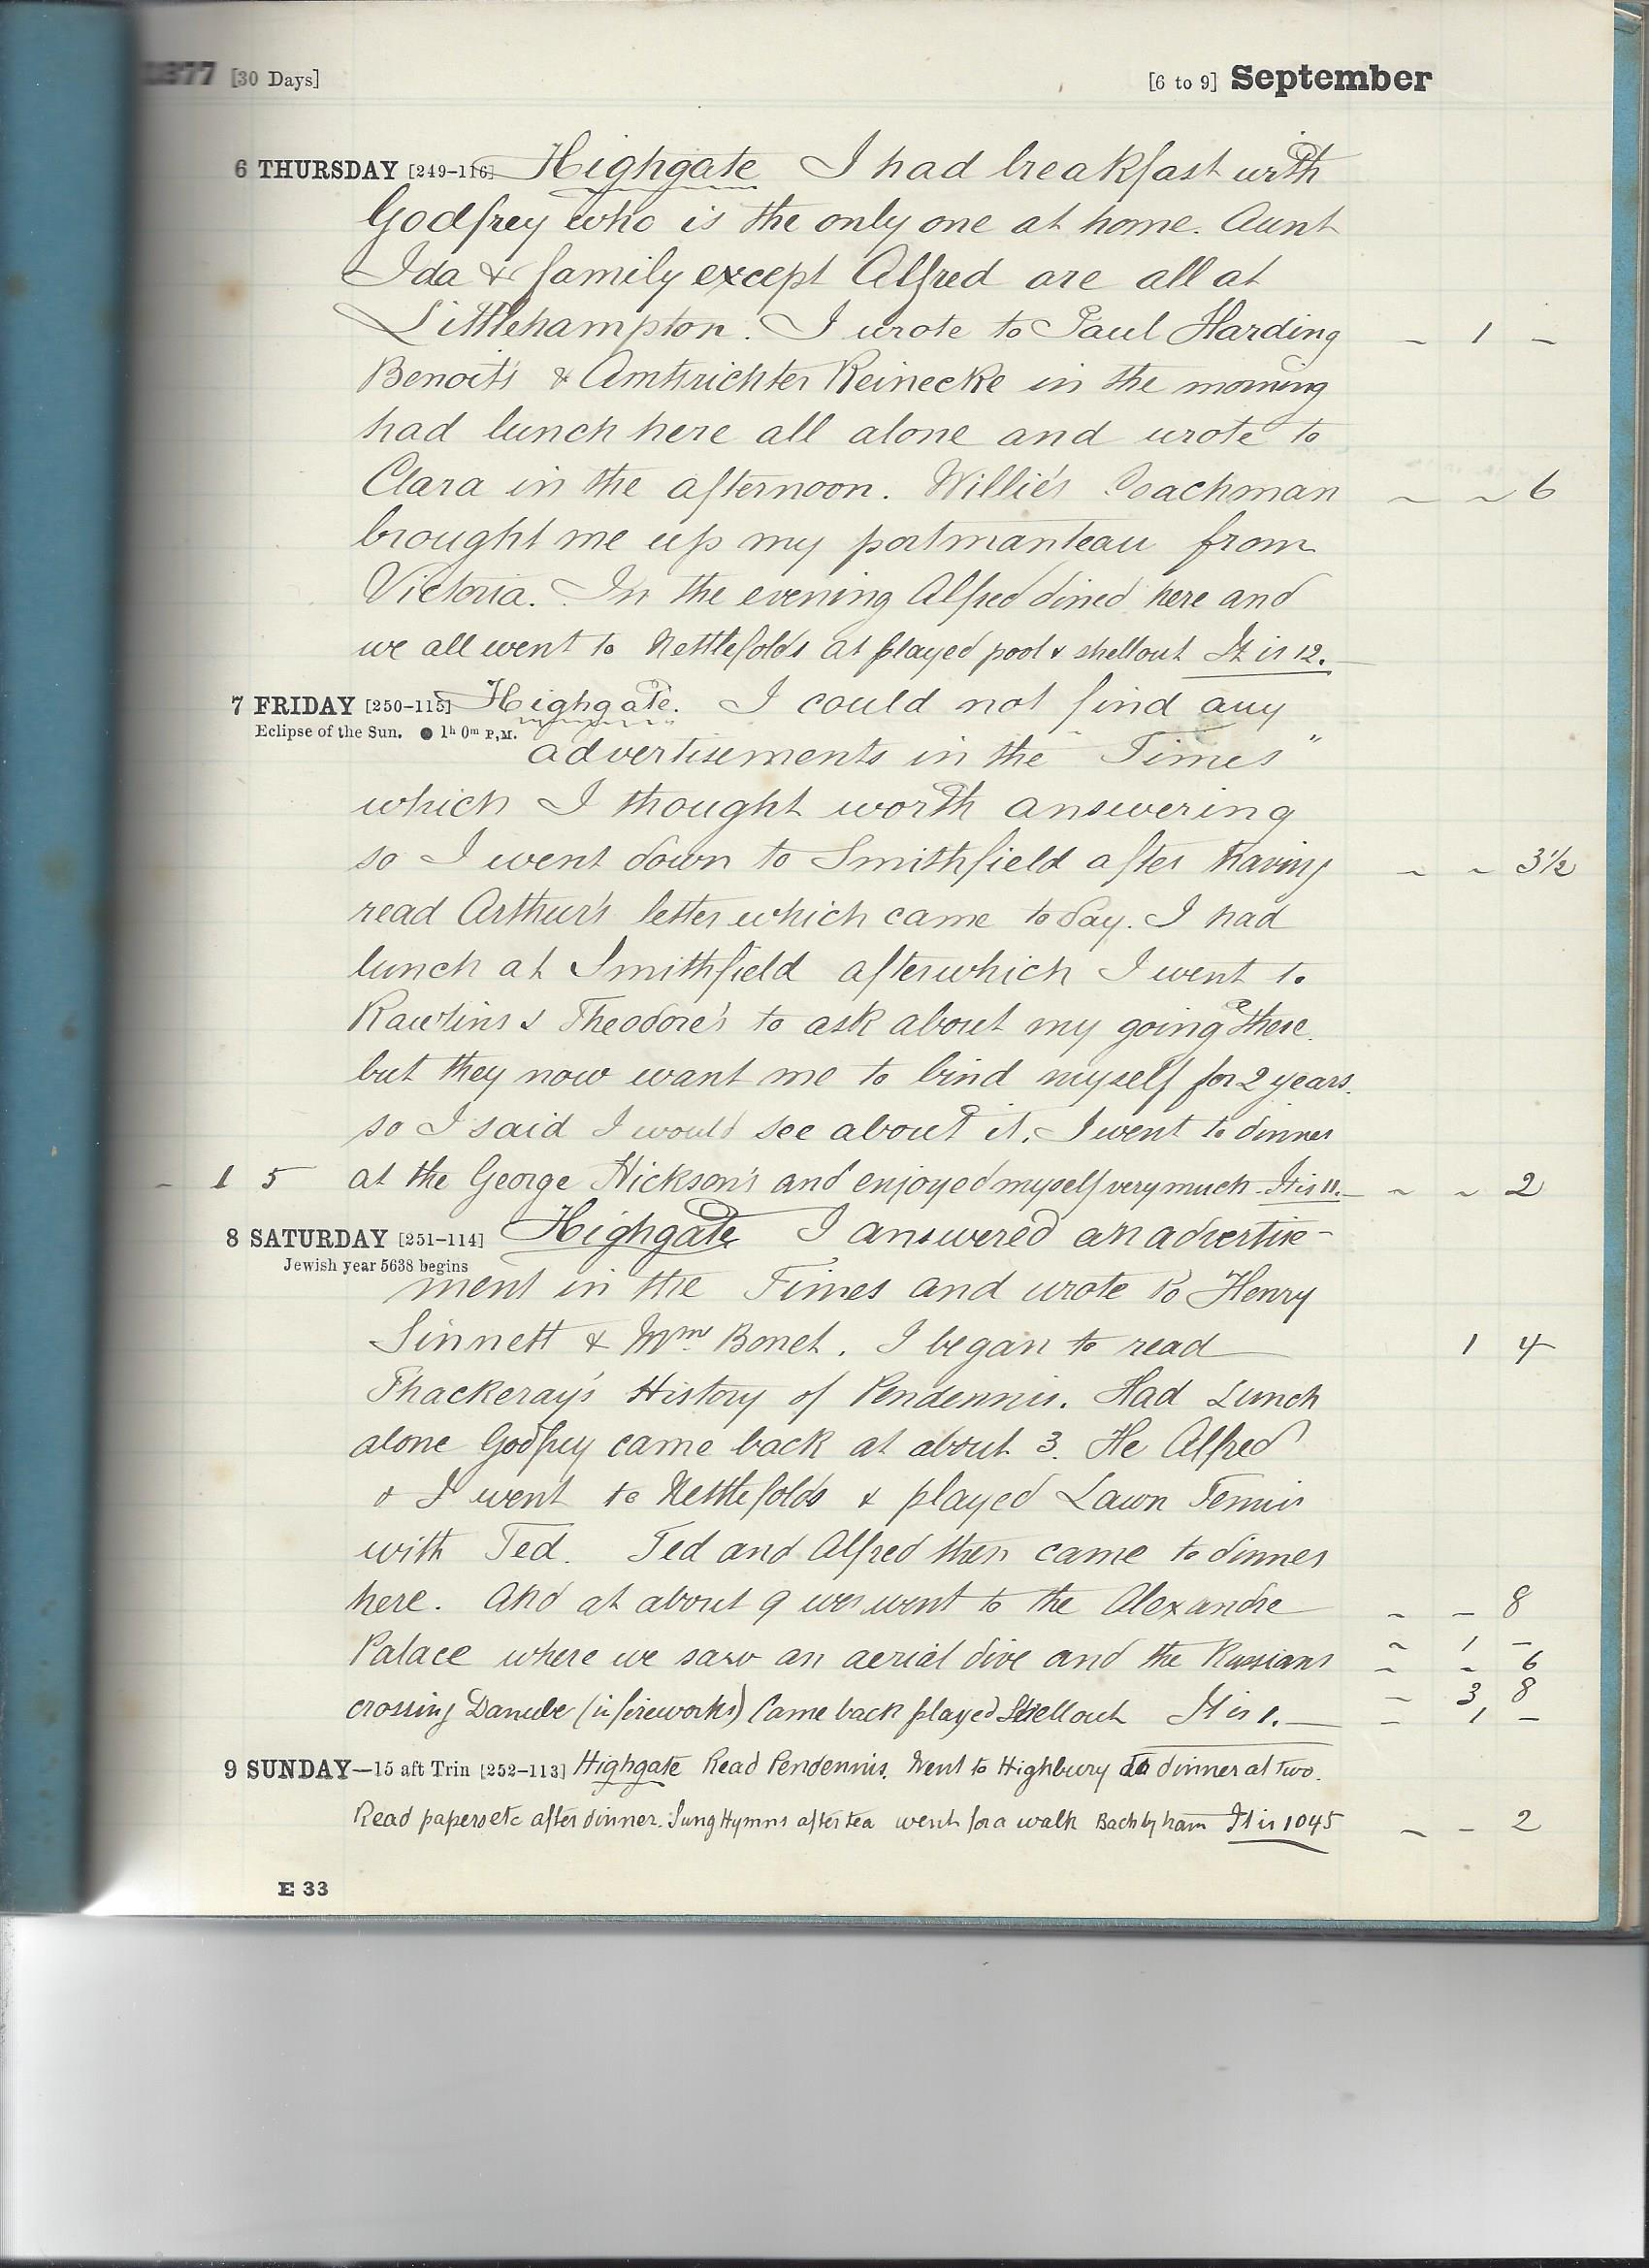 1877 [30 Days] [6 to 9] September
6 THURSDAY [249-116] Highgate I had breakfast with
Godfrey who is the only one at home. Aunt
Ida & family except Alfred are all at
Littlehampton. I wrote to Paul Harding - 1 -
Benoits & Amtsrichter Reinecke in the morning
had lunch here all alone and wrote to
Clara in the afternoon. Willie's Coachman - - 6
brought me up my portmanteau from
Victoria. In the evening Alfred dined here and
we all went to Nettlefolds at played pool & shellout It is 12.
7 FRIDAY [250-115] Highgate. I could not find any
Eclipse of the Sun. ● 1h 0m P.M.
advertisements in the "Times"
which I thought worth answering
so I went down to Smithfield after having - - 3½
read Arthur's letter which came to day. I had
lunch at Smithfield afterwhich I went to
Rawlins & Theodore's to ask about my going there
but they now want me to bind myself for 2 years.
so I said I would see about it. I went to dinner
- 1 5 at the George Hickson's and enjoyed myself very much. It is 11. - - 2
8 SATURDAY [251-114] Highgate I answered an advertise-
Jewish year 5638 begins
ment in the Times and wrote to Henry
Sinnett & Mme Bonet. I began to read 1 4
Thackeray's History of Pendennis. Had Lunch
alone Godfrey came back at about 3. He Alfred
& I went to Nettlefolds & played Lawn Tennis
with Ted. Ted and Alfred then came to dinner
here. And at about 9 we went to the Alexandre - - 8
- 1 -
Palace where we saw an aerial dive and the Russians - - 6
- 3 8
crossing Danube (in fireworks) Came back played Shellout It is 1. - 1 -
9 SUNDAY—15 aft Trin [252-113] Highgate Read Pendennis. Went to Highbury to dinner at two.
Read papers etc after dinner. Sung Hymns after tea went for a walk Back by tram It is 1045 - - 2
E 33